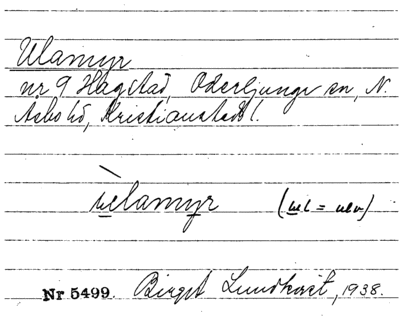 Ulamyr
nr 9 Hagstad, Oderljunga sn, N.
Åsbo hd, Kristianstads l.
ùlamyr (ul = ulv)
Nr 5499. Birgit Lundkvist, 1938.